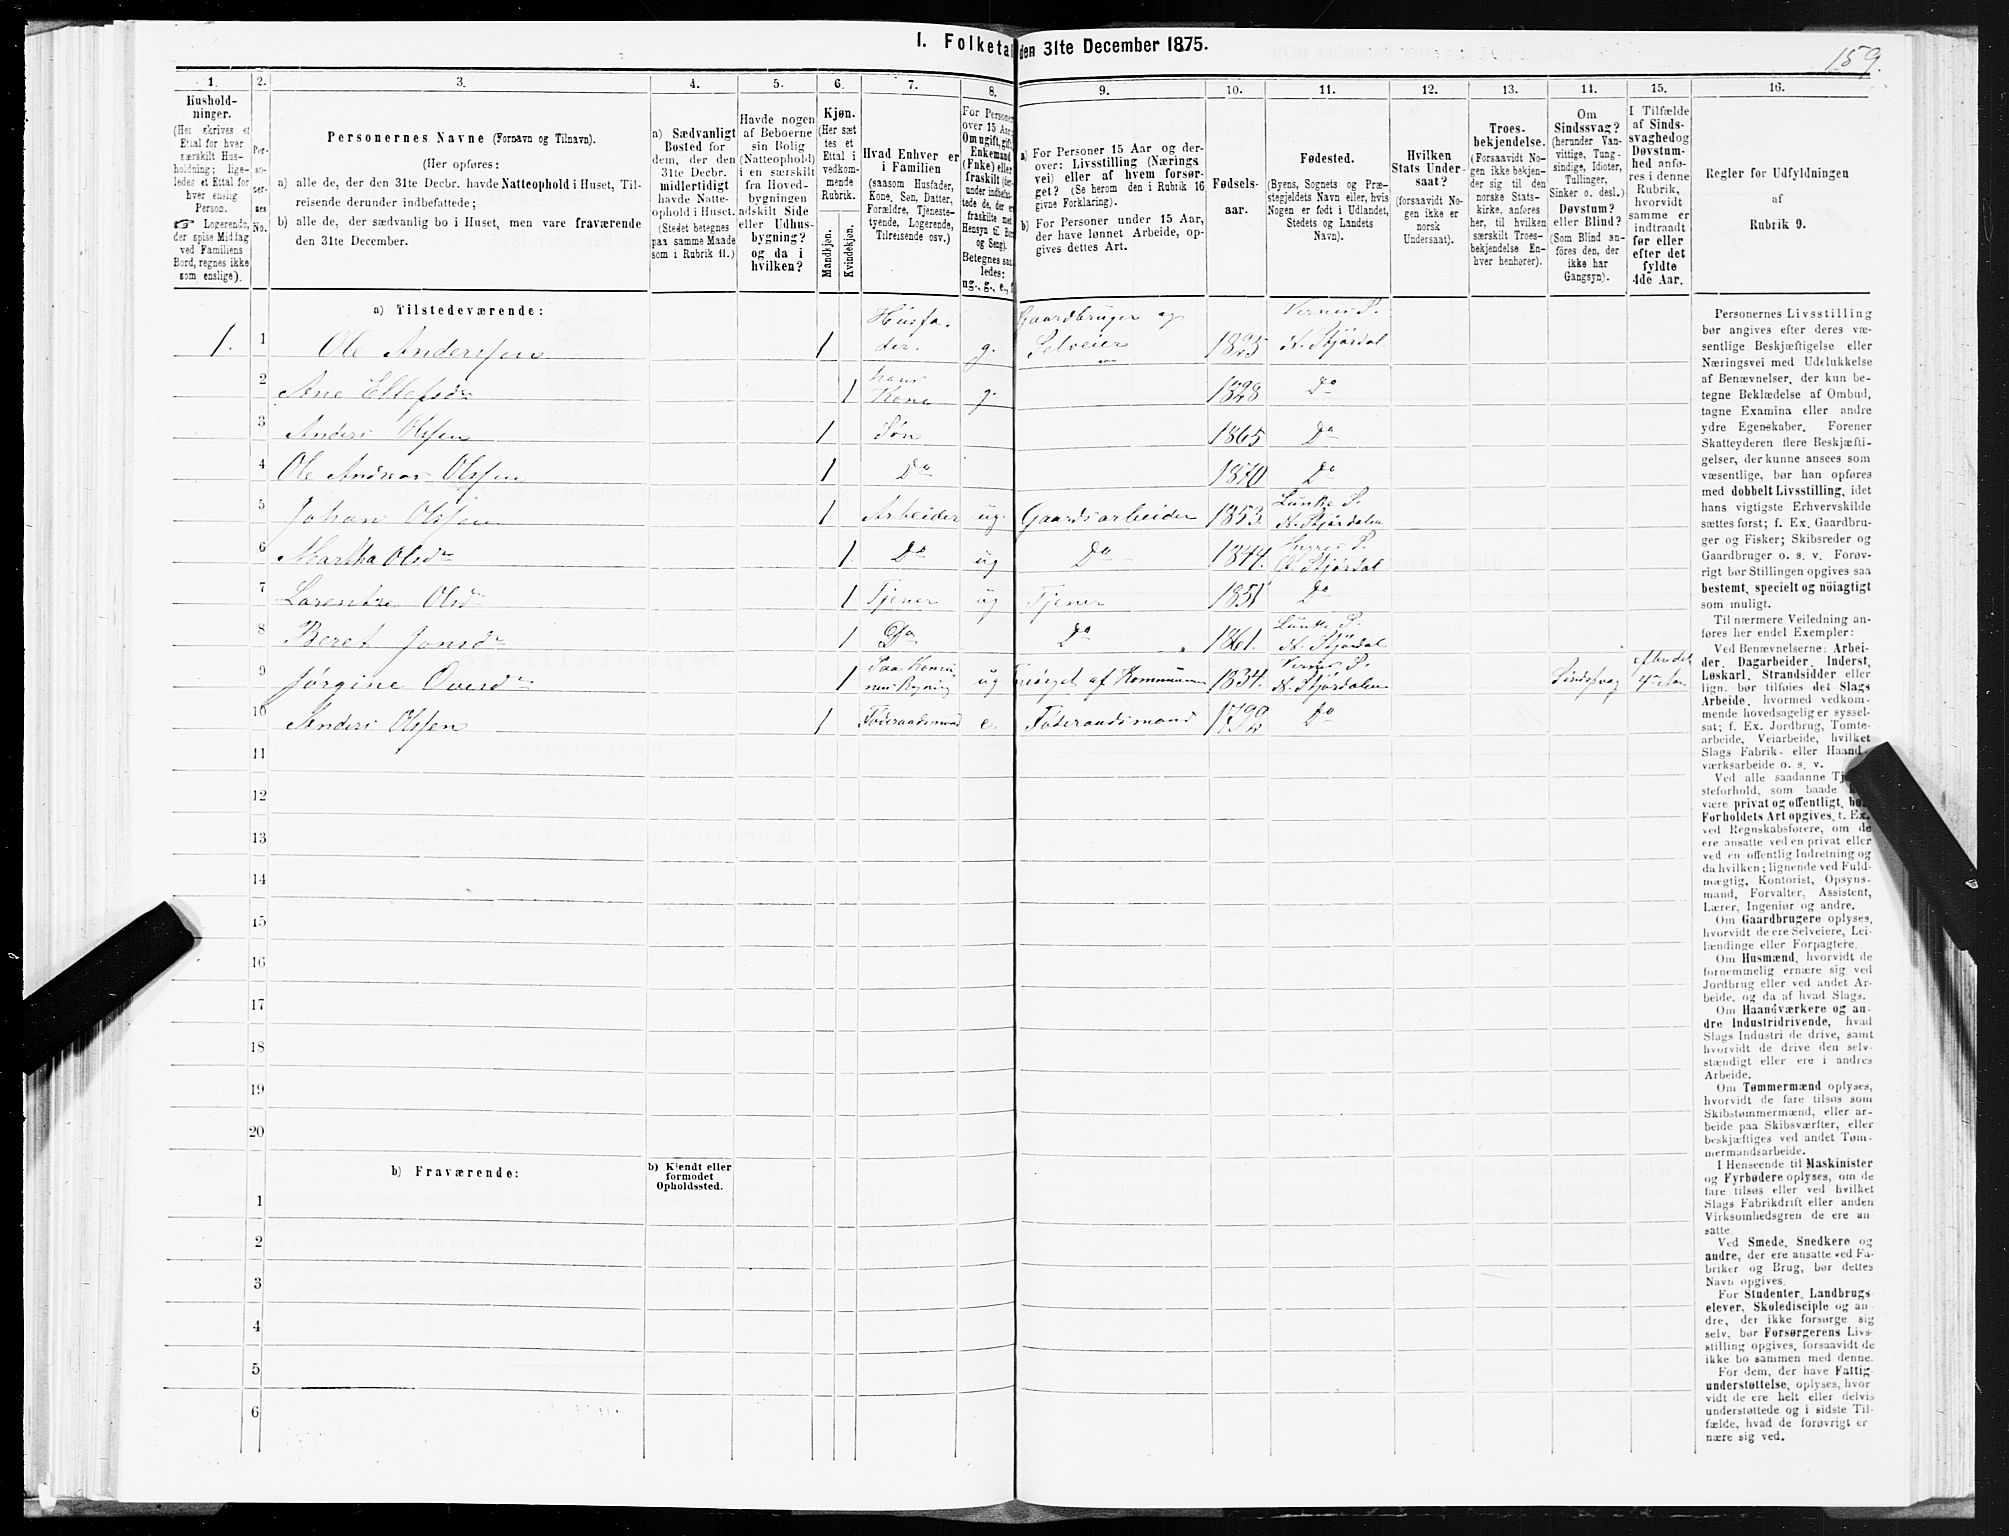 I. Folketal den 31te December 1875.
159.
1.
2.
3.
4.
5.
6.
7.
8.
9.
10.
11.
12.
13.
14.
15.
16.
Hushold-
ninger.
(Her skrives et
Ettal for hver
særskilt Hus-
holdning; lige-
ledes et Ettal for
hver enslig
Person.
☞ Logerende,
der spise Middag
ved Familiens
Bord, regnes ikke
som enslige).
Per-
so-
ner-
nes
No.
Personernes Navne (Fornavn og Tilnavn).
(Her opføres:
a) alle de, der den 31te Decbr. havde Natteophold i Huset, Til-
reisende derunder indbefattede;
b) alle de, der sædvanlig bo i Huset, men vare fraværende
den 31te December.
a) Sædvanligt
Bosted for
dem, der den
31te Decbr.
midlertidigt
havde Natte-
ophold i Huset.
(Stedet betegnes
paa samme Maade
som i Rubrik 11.)
Havde nogen
af Beboerne
sin Bolig
(Natteophold)
i en særskilt
fra Hoved-
bygningen
adskilt Side
eller Udhus-
bygning?
og da i
hvilken?
Kjøn.
(Her sæt
tes et
Ettal i
vedkom-
mende
Rubrik.
Mandkjøn.
Kvindekjøn.
Hvad Enhver er
i Familien
(saasom Husfader,
Kone, Søn, Datter,
Forældre, Tjeneste-
tyende, Logerende,
Tilreisende osv.)
For Personer
over 15 Aar:
Om ugift, gift,
Enkemand
(Enke) eller
fraskilt (der-
under indbefat-
tede de, der ere
fraskilte med
Hensyn til Bord
og Seng).
Betegnes saa-
ledes:
ug., g., e., f.
a) For Personer 15 Aar og der-
over: Livsstilling (Nærings
vei) eller af hvem forsør-
get? (Se herom den i Rubrik 16
givne Forklaring).
b) For Personer under 15 Aar,
der have lønnet Arbeide, op-
gives dettes Art.
Fødsels-
aar.
Fødested.
(Byens, Sognets og Præ-
stegjeldets Navn eller, hvis
Nogen er født i Udlandet,
Stedets og Landets
Navn).
Hvilken
Stats Under-
saat?
(forsaavidt No-
gen ikke er
norsk
Undersaat).
Troes-
bekjendelse.
(Forsaavidt No-
gen ikke bekjen-
der sig til den
norske Stats-
kirke, anføres
her, til hvilken
særskilt Troes-
bekjendelse En-
hver henhører).
Om
Sindssvag?
(herunder Van-
vittige, Tung-
sindige, Idioter,
Tullinger,
Sinker o. desl.)
Døvstum?
eller Blind?
(Som Blind an-
føres den, der
ikke har
Gangsyn).
I Tilfælde
af Sinds-
svaghed og
Døvstum-
hed anfø-
res i denne
Rubrik,
hvorvidt
samme er
indtraadt
før eller
efter det
fyldte
4de Aar.
Regler før Udfyldningen
af
Rubrik 9.
a) Tilstedeværende:
1. 1 Ole Andersen 1 Husfa-
der. g. Gaardbruger og
Selveier 1825 Vernes S.
N. Stjørdal
2 Ane Ellefsdr 1 hans
Kone g. 1828 Do
3 Anders Olsen 1 Søn 1865 Do
4 Ole Andreas Olsen 1 Do 1870 Do
5 Johan Olsen 1 Arbeider ug. Gaardsarbeider 1853. Lunke S.
N. Stjørdalen
6 Martha Olsdr 1 Do ug Do 1844. S.
Stjørdal
7 Olsdr 1 Tjener ug Tjener 1851 Do
8 Beret Jonsdr 1 Do Do 1861. Lunke S.
N. Stjørdal
9 Jørgine Ovesdr 1 Paa ug af Kommunen 1834. Vernes S.
N. Stjørdalen Sindsvag efter det
4de Aar
10 Anders Olsen 1 Føderaadsmand e. Føderaadsmand 1792 Do
11
12
13
14
15
16
17
18
19
20
b) Fraværende:
b) Kjendt eller
formodet
Opholdssted.
1
2
3
4
5
6
Personernes Livsstilling
bør angives efter deres væ-
sentlige Beskjæftigelse eller
Næringsvei med Udelukkelse
af Benævnelser, der kun be-
tegne Beklædelse af Ombud,
tagne Examina eller andre
ydre Egenskaber. Forener
Skatteyderen flere Beskjæfti-
gelser, der kunne ansees som
væsentlige, bør han opføres
med dobbelt Livsstilling, idet
hans vigtigste Erhvervskilde
sættes først; f. Ex. Gaardbru-
ger og Fisker; Skibsreder og
Gaardbruger o. s. v. Forøv-
rigt bør Stillingen opgives saa
bestemt, specielt og nøiagtigt
som muligt.
Til nærmere Veiledning an-
føres her endel Exempler:
Ved Benævnelserne: Arbei-
der, Dagarbeider, Inderst,
Løskarl, Strandsidder eller
lign. bør tilføies det Slags
Arbeide, hvormed vedkom-
mende hovedsagelig er syssel-
sat; f. Ex. Jordbrug, Tomte-
arbeide, Veiarbeide, hvilket
Slags Fabrik- eller Haand-
værksarbeide o. s. v.
Ved alle saadanne Tje-
steforhold, som baade k
være privat og offentligt, bør
Forholdets Art opgives, t. Ex.
ved Regnskabsførere, om de
ere ansatte ved en privat eller
ved en offentlig Indretning og
da hvilken; lignende ved Fuld-
mægtig, Kontorist, Opsyns-
mand, Forvalter, Assistent,
Lærer, Ingeniør og andre.
Om Gaardbrugere oplyses,
hvorvidt de ere Selveiere, Lei-
lændinge eller Forpagtere.
Om Husmænd, hvorvidt de
fornemmelig ernære sig ved
Jordbrug eller ved andet Ar-
beide, og da af hvad Slags.
Om Haandværkere og an-
dre Industridrivende, hvad
Slags Industri de drive, samt
hvorvidt de drive den selv-
stændigt eller ere i andres
Arbeide.
Om Tømmermænd oplyses,
hvorvidt de fare tilsøs som
Skibstømmermænd, eller ar-
beide paa Skibsværfter, eller
beskjæftiges ved andet Tøm-
mermandsarbeide.
I Henseende til Maskinister
og Fyrbødere oplyses, om de
fare tilsøs eller ved hvilket
Slags Fabrikdrift eller anden
Virksomhedsgren de ere an-
satte.
Ved Smede, Snedkere og
andre, der ere ansatte ved Fa-
briker og Brug, bør dettes
Navn opgives.
For Studenter, Landbrugs-
elever, Skoledisciple og an-
dre, der ikke forsørge sig
selv, bør Forsørgerens Livs-
stilling opgives, forsaavidt de
ikke bo sammen med denne.
For dem, der have Fattig-
understøttelse, oplyses, hvor-
vidt de ere helt eller delvis
understøttede og i sidste Til-
fælde, hvad de forøvrigt er-
nære sig ved.